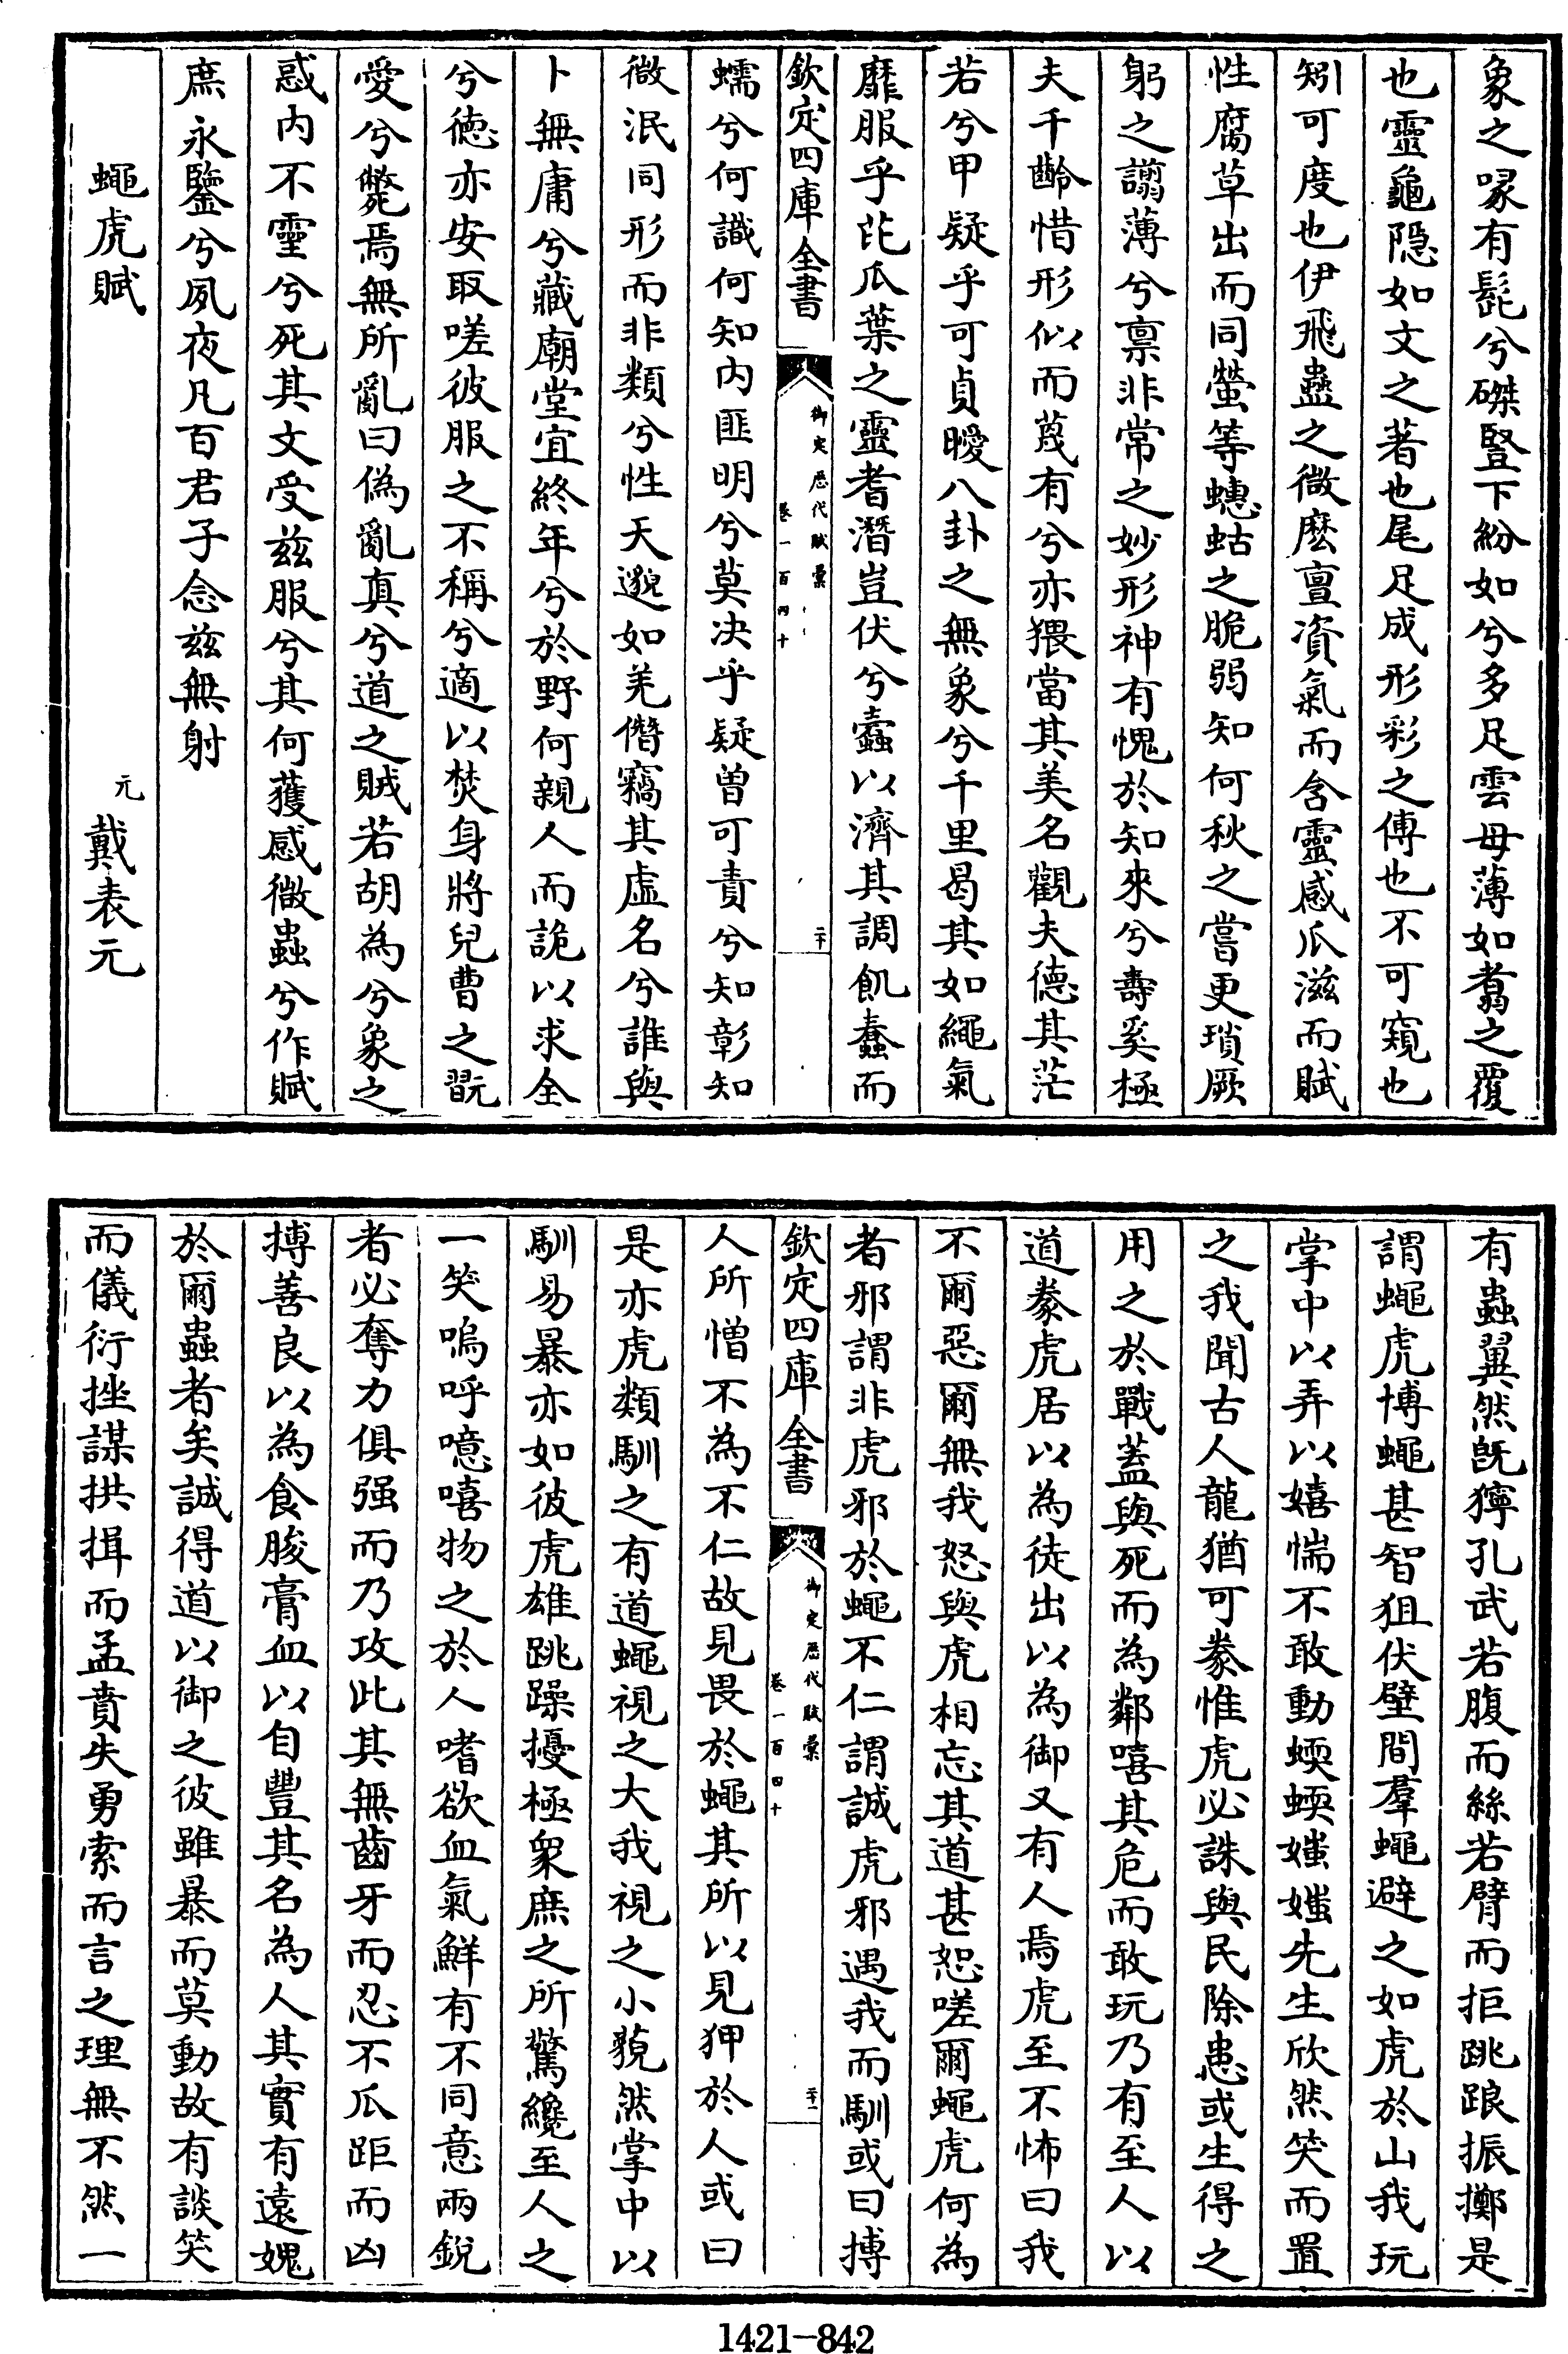 象之喙有髭兮磔豎下紛如兮多足雲母薄如翥之覆
也靈龜隠如文之著也尾足成形彩之傅也不可窺也
矧可度也伊飛蠱之微麽亶資氣而含靈感瓜滋而賦
性腐草出而同螢等蟪蛄之脆弱知何秋之嘗更瑣厥
躬之譾薄兮禀非常之妙形神有愧於知來兮壽奚極
夫千齡惜形似而蔑有兮亦猥當其美名觀夫德其茫
若兮甲疑乎可貞曖八卦之無象兮千里曷其如繩氣
靡服乎芘瓜葉之靈耆潛豈伏兮蠹以濟其調飢蠢而
欽定四庫全書
御定歴代賦彙
卷一百四十
二十
蠕兮何識何知内匪明兮莫决乎疑曾可責兮知彰知
微泯同形而非類兮性天邈如羌僭竊其虚名兮誰與
卜無庸兮藏廟堂宜終年兮於野何親人而詭以求全
兮徳亦安取嗟彼服之不稱兮適以焚身將兒曹之翫
愛兮斃焉無所亂曰偽亂真兮道之賊若胡為兮象之
惑内不靈兮死其文受兹服兮其何獲感微蟲兮作賦
庶永鑒兮夙夜凡百君子念兹無射
蠅虎賦
元
戴表元
有蟲翼然旣獰孔武若腹而絲若臂而拒跳踉振擲是
謂蠅虎博蠅甚智狙伏壁間羣蠅避之如虎於山我玩
掌中以弄以嬉惴不敢動蝡蝡媸媸先生欣然笑而置
之我聞古人龍猶可豢惟虎必誅與民除患或生得之
用之於戰蓋與死而為鄰嘻其危而敢玩乃有至人以
道豢虎居以為徒出以為御又有人焉虎至不怖曰我
不爾惡爾無我怒與虎相忘其道甚恕嗟爾蠅虎何為
者邪謂非虎邪於蠅不仁謂誠虎邪遇我而馴或曰搏
欽定四庫全書
御定歴代賦彙
卷一百四十
二十一
人所憎不為不仁故見畏於蠅其所以見狎於人或曰
是亦虎類馴之有道蠅視之大我視之小藐然掌中以
馴易暴亦如彼虎雄跳躁擾極衆庶之所驚纔至人之
一笑嗚呼噫嘻物之於人嗜欲血氣鮮有不同意兩銳
者必奪力俱强而乃攻此其無齒牙而忍不爪距而凶
搏善良以為食朘膏血以自豐其名為人其實有遠媿
於爾蟲者矣誠得道以御之彼雖暴而莫動故有談笑
而儀衍挫謀拱揖而孟賁失勇索而言之理無不然一
1421-842